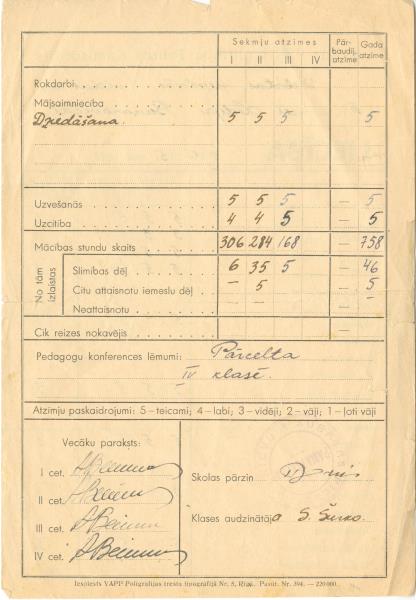 Sekmju atzīmes Pār-baudīj. atzīme Gada atzīme
I II III IV
Rokdarbi
Mājsaimniecība
Dziedāšana 5 5 5 5
Uzvešanās 5 5 5 — 5
Uzcītība 4 4 5 — 5
Mācības stundu skaits 306 284 168 — 758
No tām izlaistas
Slimības dēļ 6 35 5 — 46
Citu attaisnotu iemeslu dēļ — 5 — 5
Neattaisnotu — —
Cik reizes nokavējis —
Pedagogu konferences lēmumi: Pārcelta
IV klasē.
Atzīmju paskaidrojumi: 5–teicami; 4–labi; 3–vidēji; 2–vāji; 1–ļoti vāji
Vecāku paraksts:
I cet.
II cet.
III cet.
IV cet.
Skolas pārzin
Klases audzinātāja S.
Iespiests VAPP Poligrafijas tresta tipogrāfijā Nr. 8, Rīgā. Pasūt. Nr. 394. — 220000.